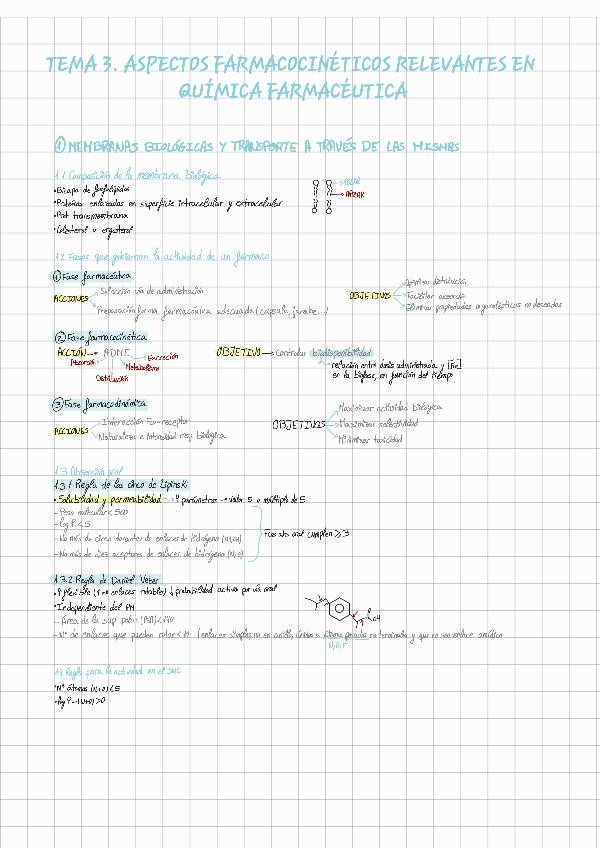 TEMA 3. ASPECTOS FARMACOCINÉTICOS RELEVANTES EN
QUÍMICA FARMACÉUTICA
① MEMBRANAS BIOLÓGICAS Y TRANSPORTE A TRAVÉS DE LAS MISMAS
1.1 Composición de la membrana biológica
• Bicapa de fosfolípidos
• Proteínas enlazadas en superficie intracelular y extracelular
• Prot transmembrana
• Colesterol o ergosterol
POLAR
APOLAR
1.2 Fases que gobiernan la actividad de un fármaco
① Fase farmacéutica
ACCIONES
Selección vía de administración
Preparación forma farmacéutica adecuada (cápsula, jarabe...)
OBJETIVOS
Optimizar distribución
Facilitar absorción
Eliminar propiedades organolépticas no deseadas
② Fase farmacocinética
ACCIÓN → ADME
Absorción
Distribución
Metabolismo
Excreción
OBJETIVO → Controlar biodisponibilidad
relación entre dosis administrada y [Fco]
en la biofase, en función del tiempo
③ Fase farmacodinámica
ACCIONES
Interacción Fco-receptor
Naturaleza e intensidad resp biológica
OBJETIVOS
Maximizar actividad biológica
Maximizar selectividad
Minimizar toxicidad
1.3 Absorción oral
1.3.1 Regla de los cinco de Lipinski
• Solubilidad y permeabilidad → 4 parámetros → valor 5 o múltiplo de 5
- Peso molecular < 500
- log P < 5
- No más de cinco donantes de enlaces de hidrógeno (NH, OH)
- No más de diez aceptores de enlaces de hidrógeno (N, O)
Fcos vía oral cumplen ≥ 3
1.3.2 Regla de Daniel Veber
• ↑ flexible (↑ nº enlaces rotables) ↓ probabilidad activo por vía oral
• Independiente del PM
- Área de la sup polar (PSA) < 140
- Nº de enlaces que puedan rotar < 10 (enlaces simples, no en anillo, unidos a átomo pesado no terminal y que no sea enlace amídico
N, O, F
OH
1.4 Regla para la actividad en el SNC
• Nº átomos (N+O) < 5
• log P - (N+O) > 0